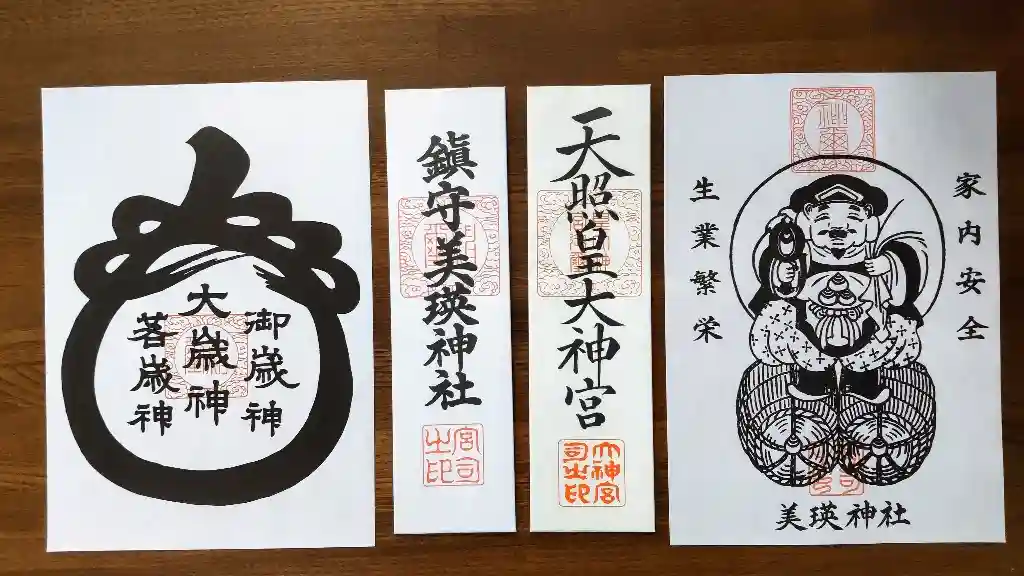 御歳神
大歳神
若歳神
鎮守美瑛神社
宮司
之印
天照皇大神宮
大神宮
司之印
家内安全
生業繁栄
美瑛神社